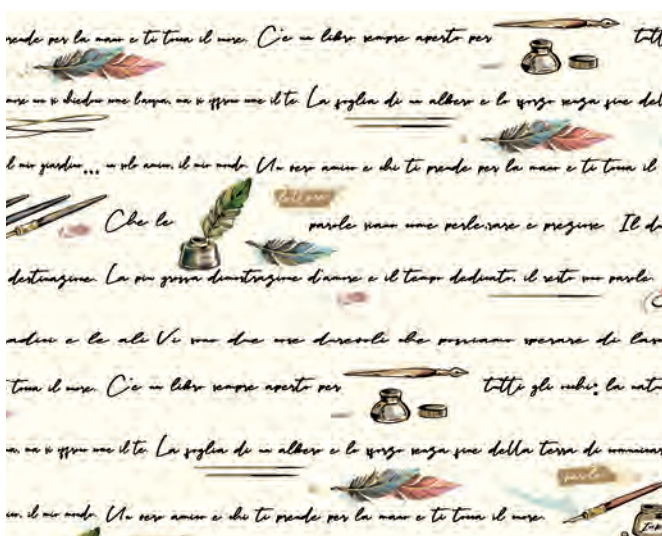 prende per la mano e ti tocca il cuore. C'è un libro sempre aperto per tutti
amore non si chiedono come l'acqua, ma si offrono come il tè. La foglia di un albero e lo sforzo senza fine del
il mio giardino... un solo amico, il mio mondo. Un vero amico e chi ti prende per la mano e ti tocca il
lettere
Che le parole siano come perle: rare e preziose. Il
destinazione. La più grossa dimostrazione d'amore e il tempo dedicato, il resto sono parole.
radici e le ali Vi sono due cose durevoli che possiamo sperare di
tocca il cuore. C'è un libro sempre aperto per tutti gli occhi: la
ma si offrono come il tè. La foglia di un albero e lo sforzo senza fine della terra di
parole
il mio mondo. Un vero amico e chi ti prende per la mano e ti tocca il cuore.
Ink